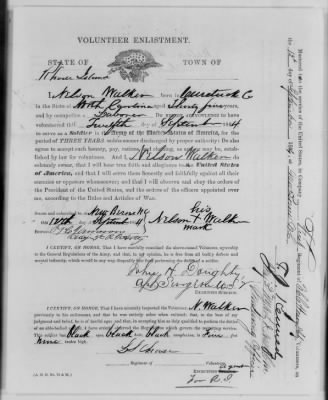 VOLUNTEER ENLISTMENT.
STATE OF TOWN OF
Rhode Island
I, Nelson Walker born in
in the State of North Carolina aged Thirty five years,
and by occupation a Laborer Do HEREBY ACKNOWLEDGE to have
volunteered this Twelfth day of September 1864
to serve as a Soldier in the Army of the United States of America, for the
period of THREE YEARS unless sooner discharged by proper authority: Do also
agree to accept such bounty, pay, rations, and clothing, as are, or may be, estab-
lished by law for volunteers. And I, Nelson Walker do
solemnly swear, that I will bear true faith and allegiance to the United States
of America, and that I will serve them honestly and faithfully against all their
enemies or opposers whomsoever; and that I will observe and obey the orders
of the President of the United States, and the orders of the officers appointed over
me, according to the Rules and Articles of War.
Sworn and subscribed to, at New Berne NC his
this 12th day of September 1864 Nelson X Walker
BEFORE mark
I CERTIFY, ON HONOR, That I have carefully examined the above-named Volunteer, agreeably
to the General Regulations of the Army, and that, in my opinion, he is free from all bodily defects and
mental infirmity, which would in any way disqualify him from performing the duties of a soldier.
John H. Doughty
EXAMINING SURGEON.
I CERTIFY, ON HONOR, That I have minutely inspected the Volunteer, N. Walker
previously to his enlistment, and that he was entirely sober when enlisted; that, to the best of my
judgment and belief, he is of lawful age; and that, in accepting him as duly qualified to perform the duties
of an able-bodied soldier, I have strictly observed the Regulations which govern the recruiting service.
This soldier has black eyes, black hair, black complexion, is Five feet
Nine inches high.
Regiment of Volunteers,
RECRUITING OFFICER
For R I
(A. G. O. No. 74 & 76.)